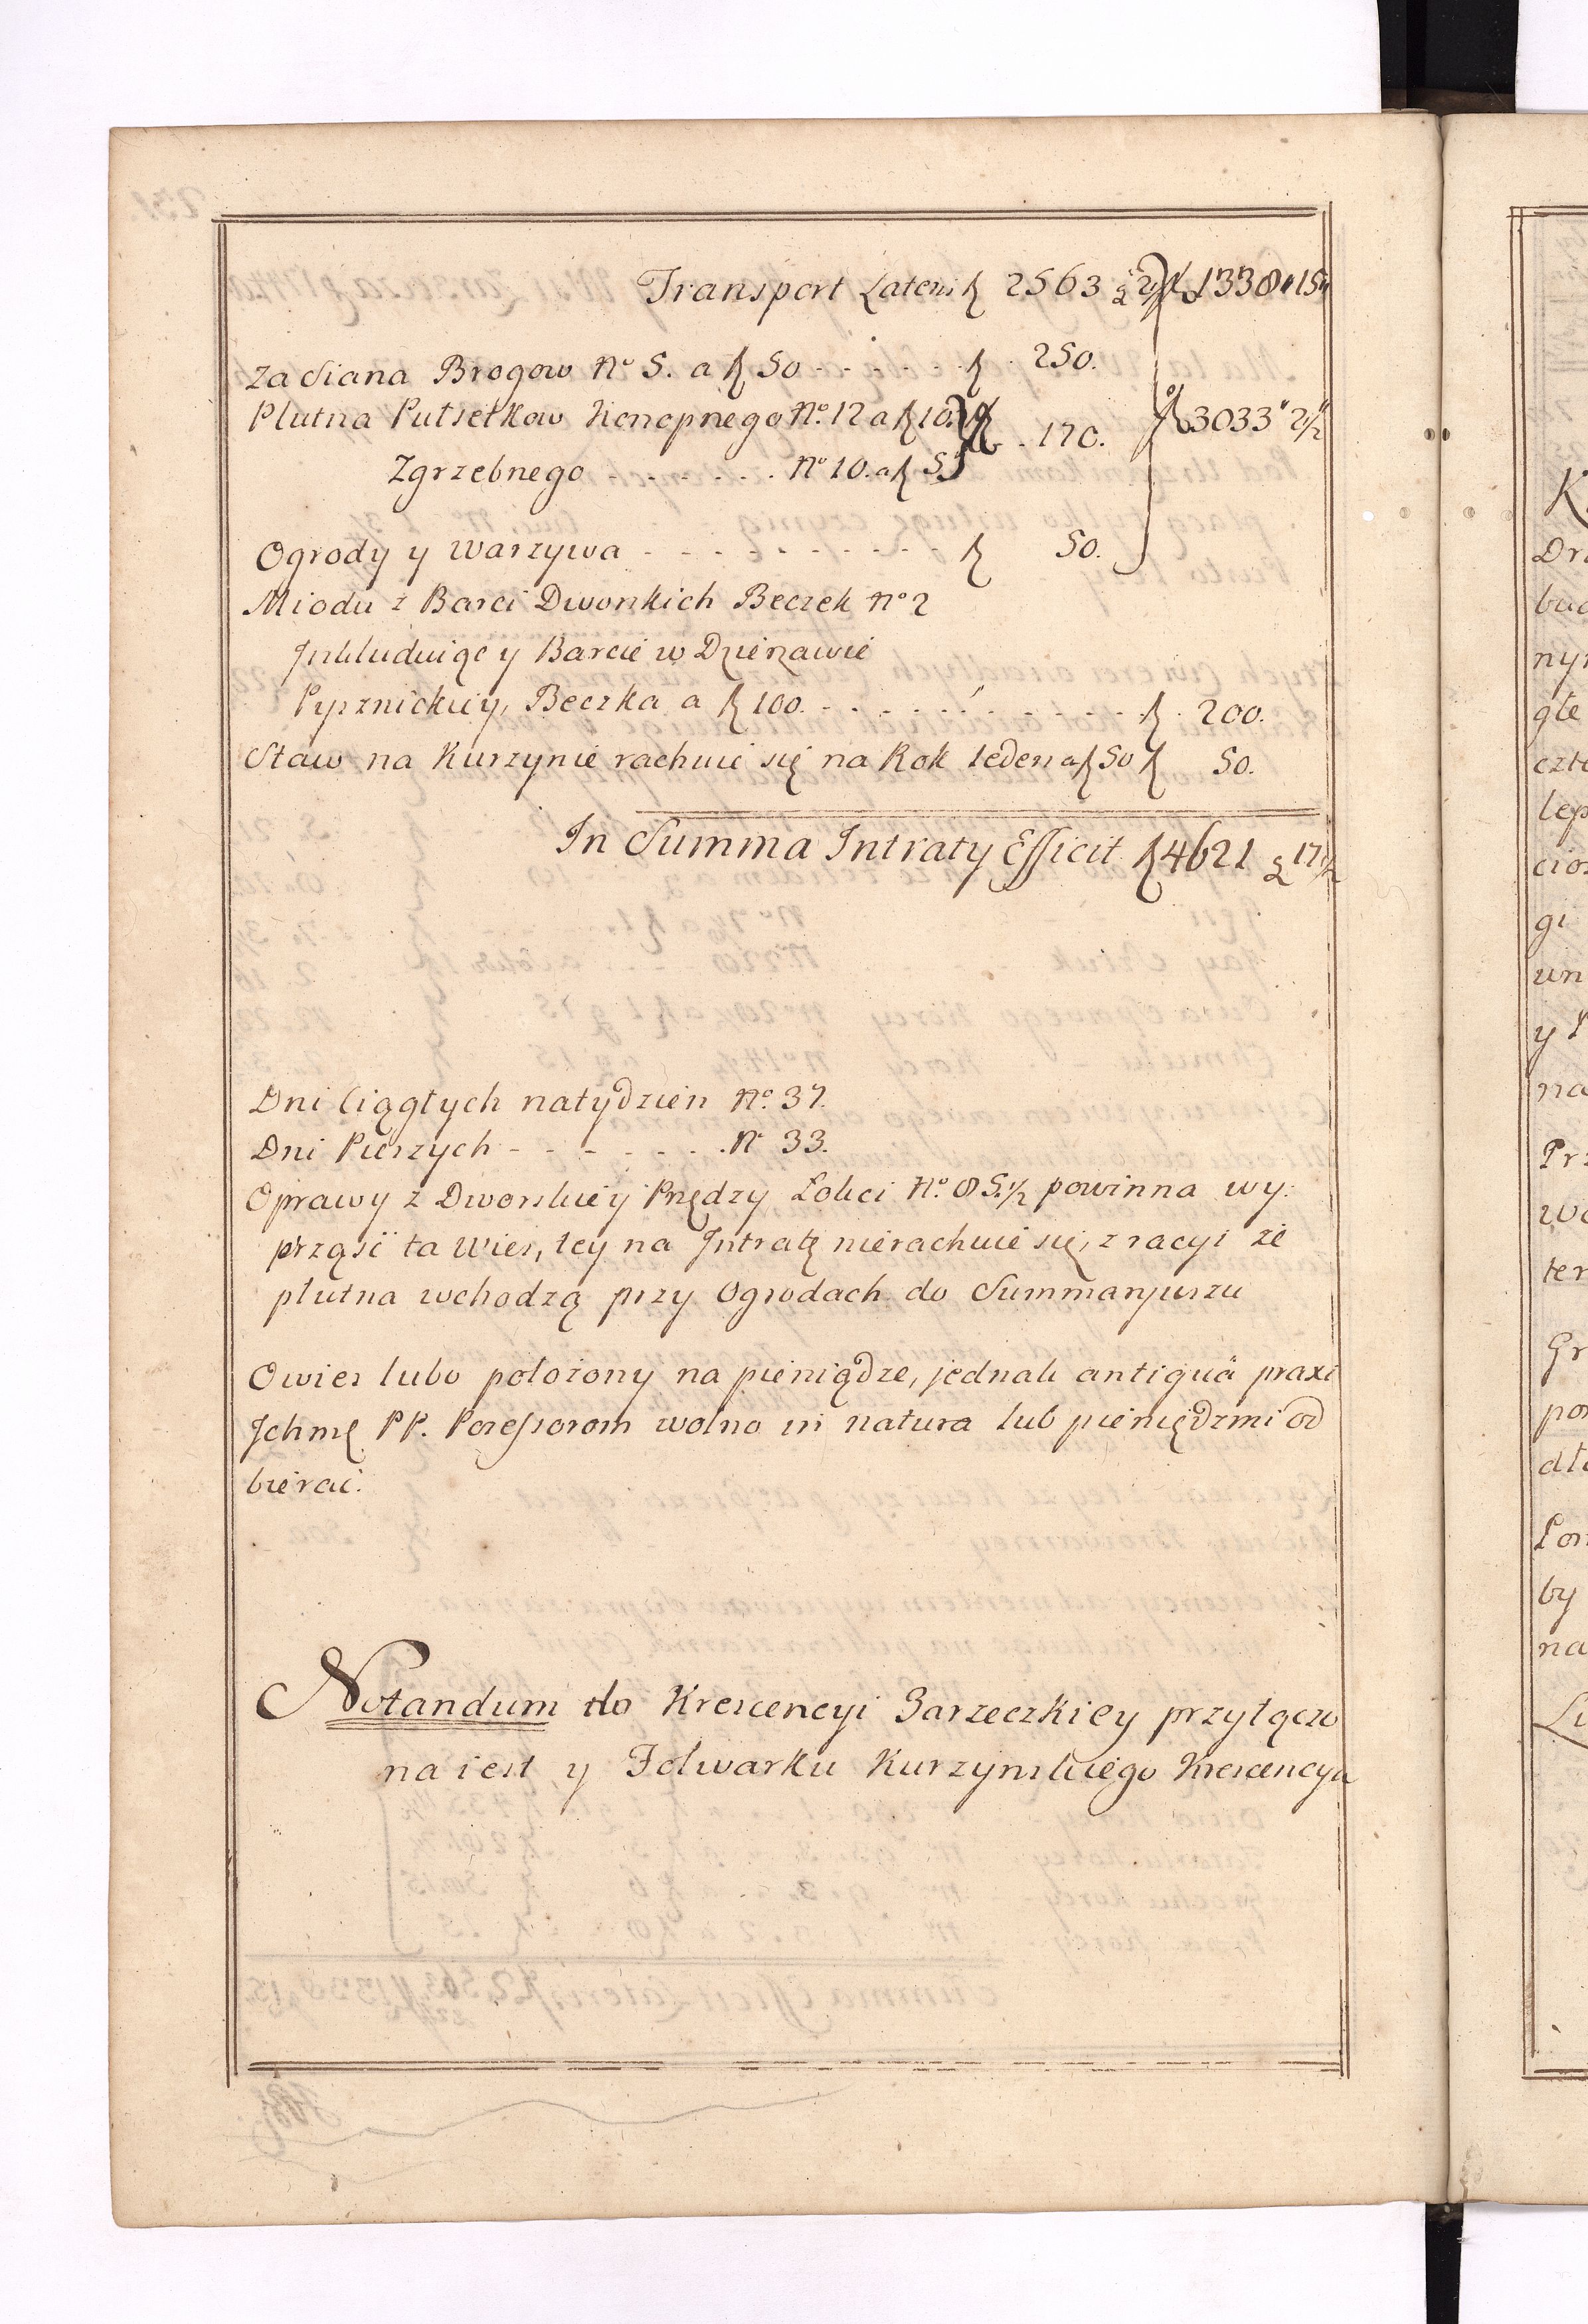 Transport Lateris ƶ 2563 g 2½ ƶ 1338 " 15 "
Za Siana Brogow No 5. a ƶ 50 - - - - - ƶ . 250.
Plutna Pułsetkow Konopnego No. 12 a ƶ 10. ƶ . 170. ƶ 3033 " 2½ "
Zgrzebnego - - - - - - No 10. a ƶ 5
Ogrody y Warzywa - - - - - - - - - ƶ 50.
Miodu z Barci Dworskich Beczek No 2
Inkluduiąc y Barcie w Dzierżawie
Pysznickiey, Beczka a ƶ 100. - - - - - - - - - - - ƶ . 200.
Staw na Kurzynie rachuie się na Rok ieden a ƶ 50 ƶ 50.
In Summa Intraty Efficit ƶ 4621 g 17½
Dni Ciągłych natydzień No. 37.
Dni Pieszych - - - - - - . No 33.
Oprawy z Dworskiey Przędzy Łokci No. 85.½ powinna wy:
prząść ta Wieś, tey na Intratę nierachuie się, z racyi że
płutna wchodzą przy Ogrodach do Summaryuszu
Owies lubo położony na pieniądze, jednak antiquâ praxi
Ichmę PP. Possessorom wolno in natura lub pieniędzmi od
bierać.
Notandum do Krescencyi Jarzeczkiey przyłączo
na iest y Folwarku Kurzynskiego Krescencya